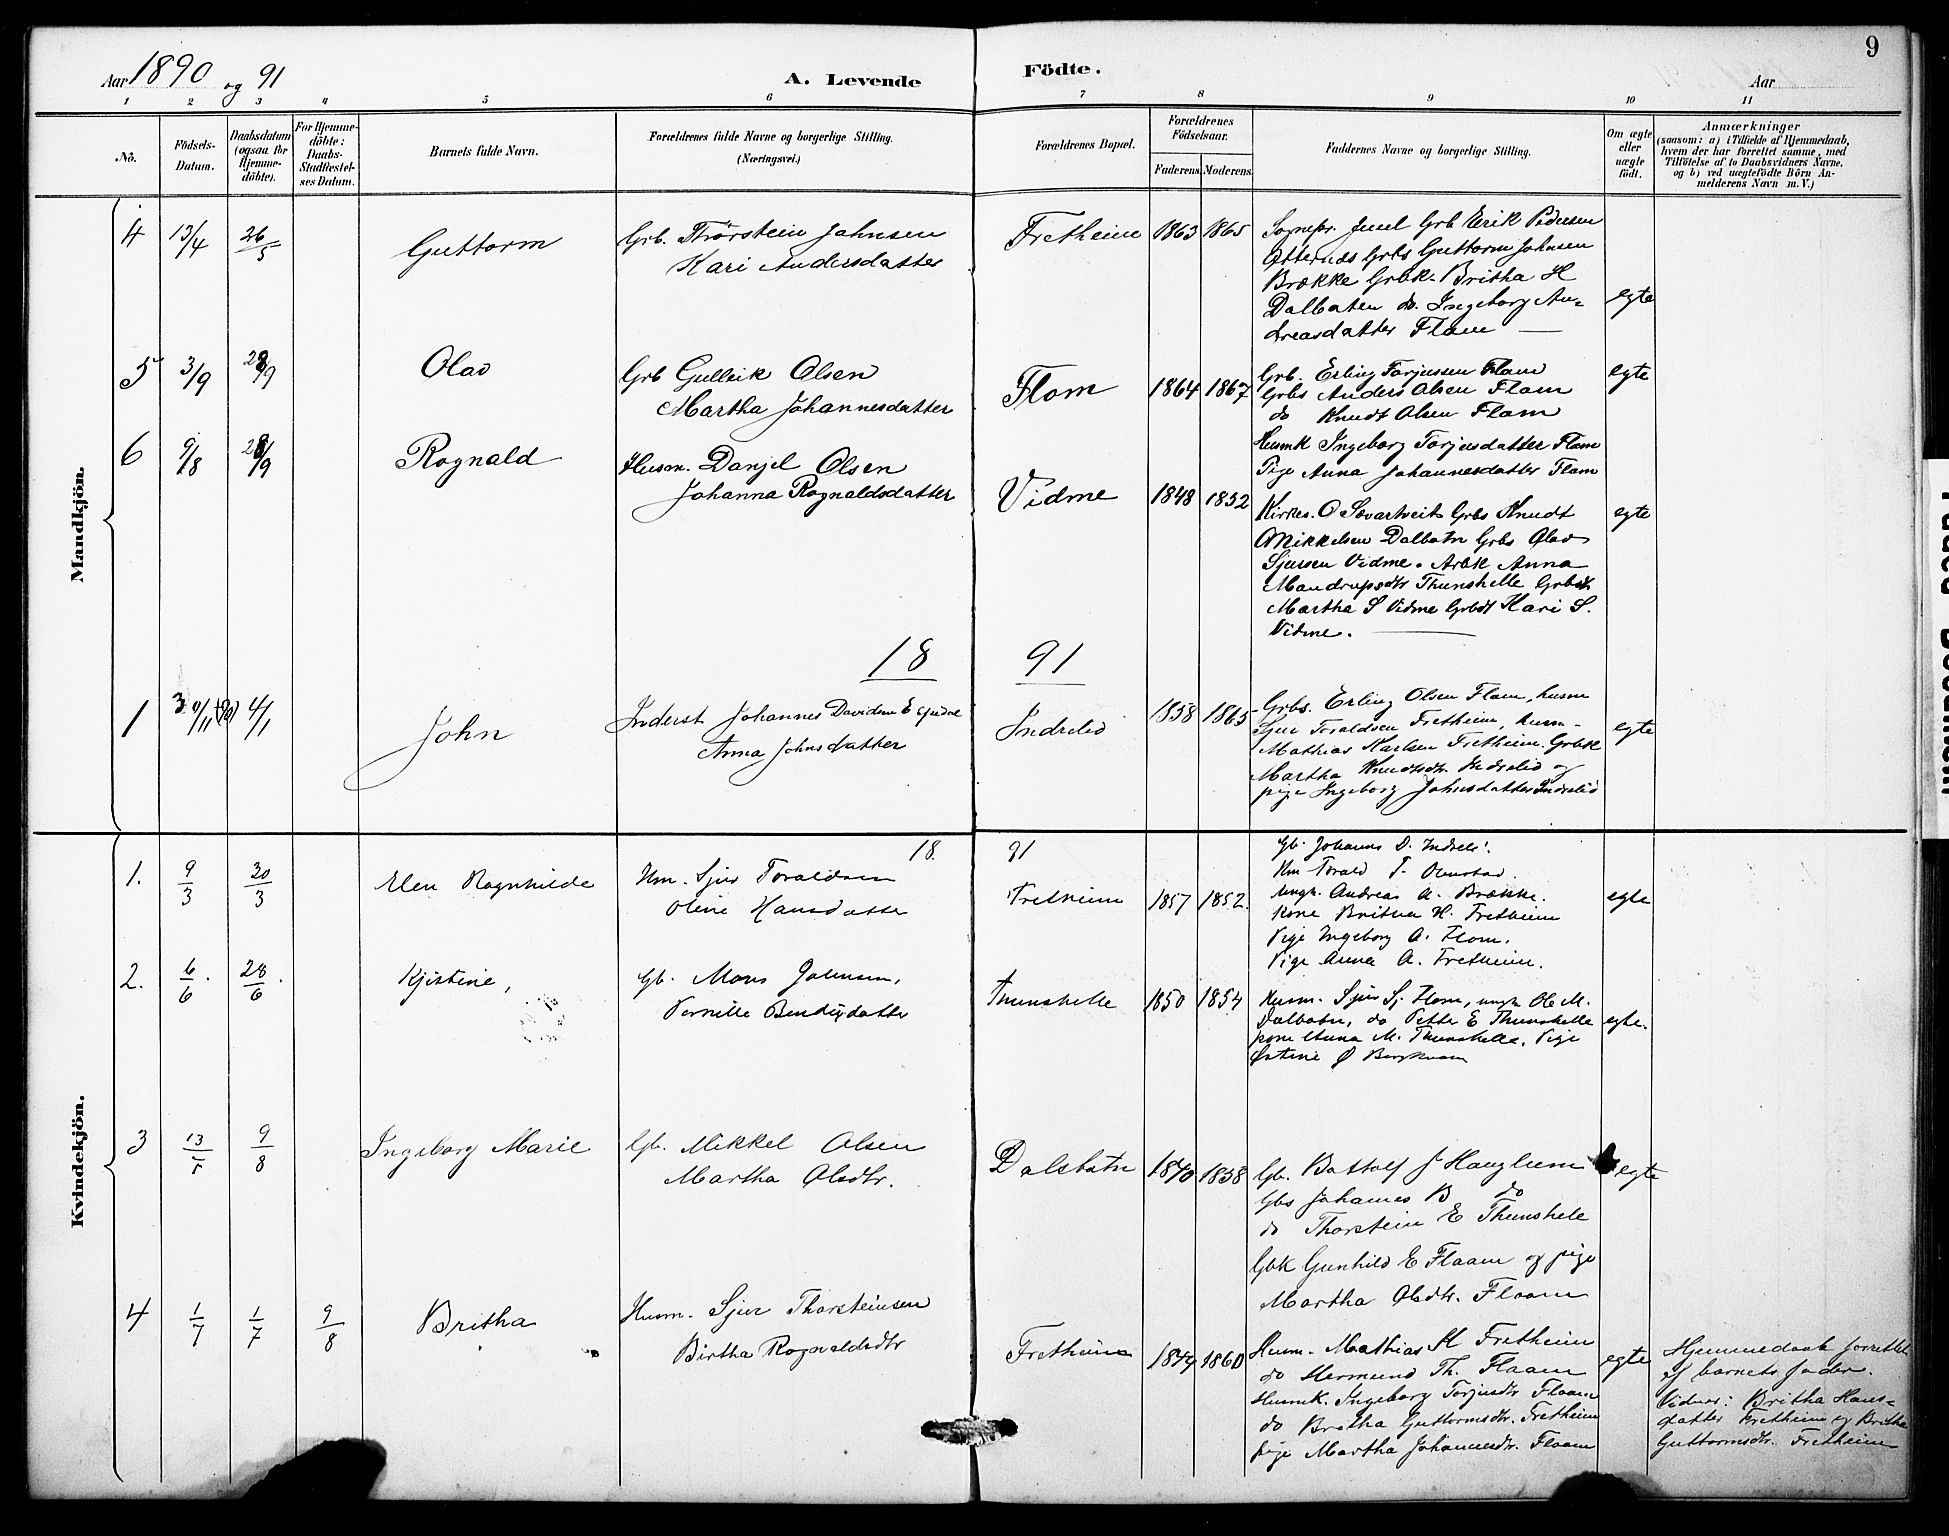 9
Aar 1890 og 91
A. Levende Födte.
Aar
1 2 3 4 5 6 7 8 9 10 11
No.
Födsels-Datum.
Daabsdatum (ogsaa for Hjemme-döbte).
For Hjemme-döbte: Daabs-Stadfæstel-ses Datum.
Barnets fulde Navn.
Forældrenes fulde Navne og borgerlige Stilling. (Næringsvei.)
Forældrenes Bopæl.
Forældrenes Födselsaar.
Faderens Moderens
Faddernes Navne og borgerlige Stilling.
Om ægte eller uægte födt.
Anmærkninger
(saasom: a) i Tilfælde af Hjemmedaab,
hvem der har forrettet samme, med
Tilföielse af to Daabsvidners Navne,
og b) ved uægtefödte Börn An-
melderens Navn m. V.)
Mandkjön.
4 13/4 26/5 Guttorm
Grb. Thorstein Johnsen
Kari Andersdatter
Fretheim 1863 1865
Sognepr. Juul Grb Eirik Pedersen
Otternæs Grbs Guttorm Johnsen
Brække Grbk. Britha H
Dalbaten do. Ingeborg An-
dreasdatter Flam
egte
5 3/9 28/9 Olav
Grb Gullik Olsen
Martha Johannesdatter
Flom 1864 1867
Grb. Erling Torjussen Flam
Grbs Anders Olsen Flam
do Knudt Olsen Flam
Husmk Ingeborg Torjusdatter Flam
Pige Anna Johannesdatter Flam
egte
6 9/8 28/9 Rognald
Husm. Danjel Olsen
Johanna Rognaldsdatter
Vidme 1848 1852
Kirkes. O Sværtveit Grbs Knudt
Mikkelsen Dalbotn Grbs Olav
Sjursen Vidme. Arbk Anna
Mandrupsdtr Thunshelle Grbdt
Martha S Vidme Grbdt Kari S.
Vidme.
egte
18 91
1 30/11 (90) 4/1 John
Inderst Johannes Davidsen
Anna Johnsdatter
Indrelid 1858 1865
Grbs. Erling Olsen Flam, husm
Sjur Toraldsen Fretheim, husm-
Mathias Karlsen Fretheim. Grbk
Martha Knudsdtr. Indrelid og
pige Ingeborg Johnsdatter Indrelid
egte
Kvindekjön.
18. 91
1. 9/3 30/3 Elen Ragnhilde
Hm. Sjur Toraldsen
Oline Hansdatter
Fretheim 1857 1852.
Gb. Johanns D. Indrel.
Hm Torald T.
Ungk. Andreas A. Brække.
Kone Britha H. Fretheim
Pige Ingeborg A. Flom.
Pige Anna A. Fretheim.
egte
2. 6/6. 28/6. Kjistine,
Gb. Mons Johnsen,
Pernille Bendixdatter
Thunshelle 1850 1854
Husm. Sjur Sj. Flom, ungk Ole M.
Dalbotn, do Petter E Thunshelle
kone Anna M. Thunshelle. Pige
Østine Ø Bergkvam
egte.
3 13/5 9/8 Ingeborg Marie
Gb. Mikkel Olsen
Martha Olsdtr.
Dalsbotn 1840 1838
Gb. Bottolf J Haugheim
Gbs Johannes B do
do Thorstein E Thunshele
Gbk Gunhild E Flaam og pige
Martha Olsdtr. Flaam
egte
4 1/7 1/7 9/8 Britha
Husm. Sjur Thorsteinsen
Birtha Rognaldsdtr
Fretheim 1844 1860
Husm. Mathias K Fretheim
do Hermund Th. Flaam
Husmk. Ingeborg Torjusdtr Flaam
do Britha Guttormsdtr. Fretheim
pige Martha Johannesdtr. Flaam
egte
Hjemmedaab forrettet
af barnets fader.
Vidner: Britha Hans-
datter Fretheim og Britha
Guttormsdtr. Fretheim